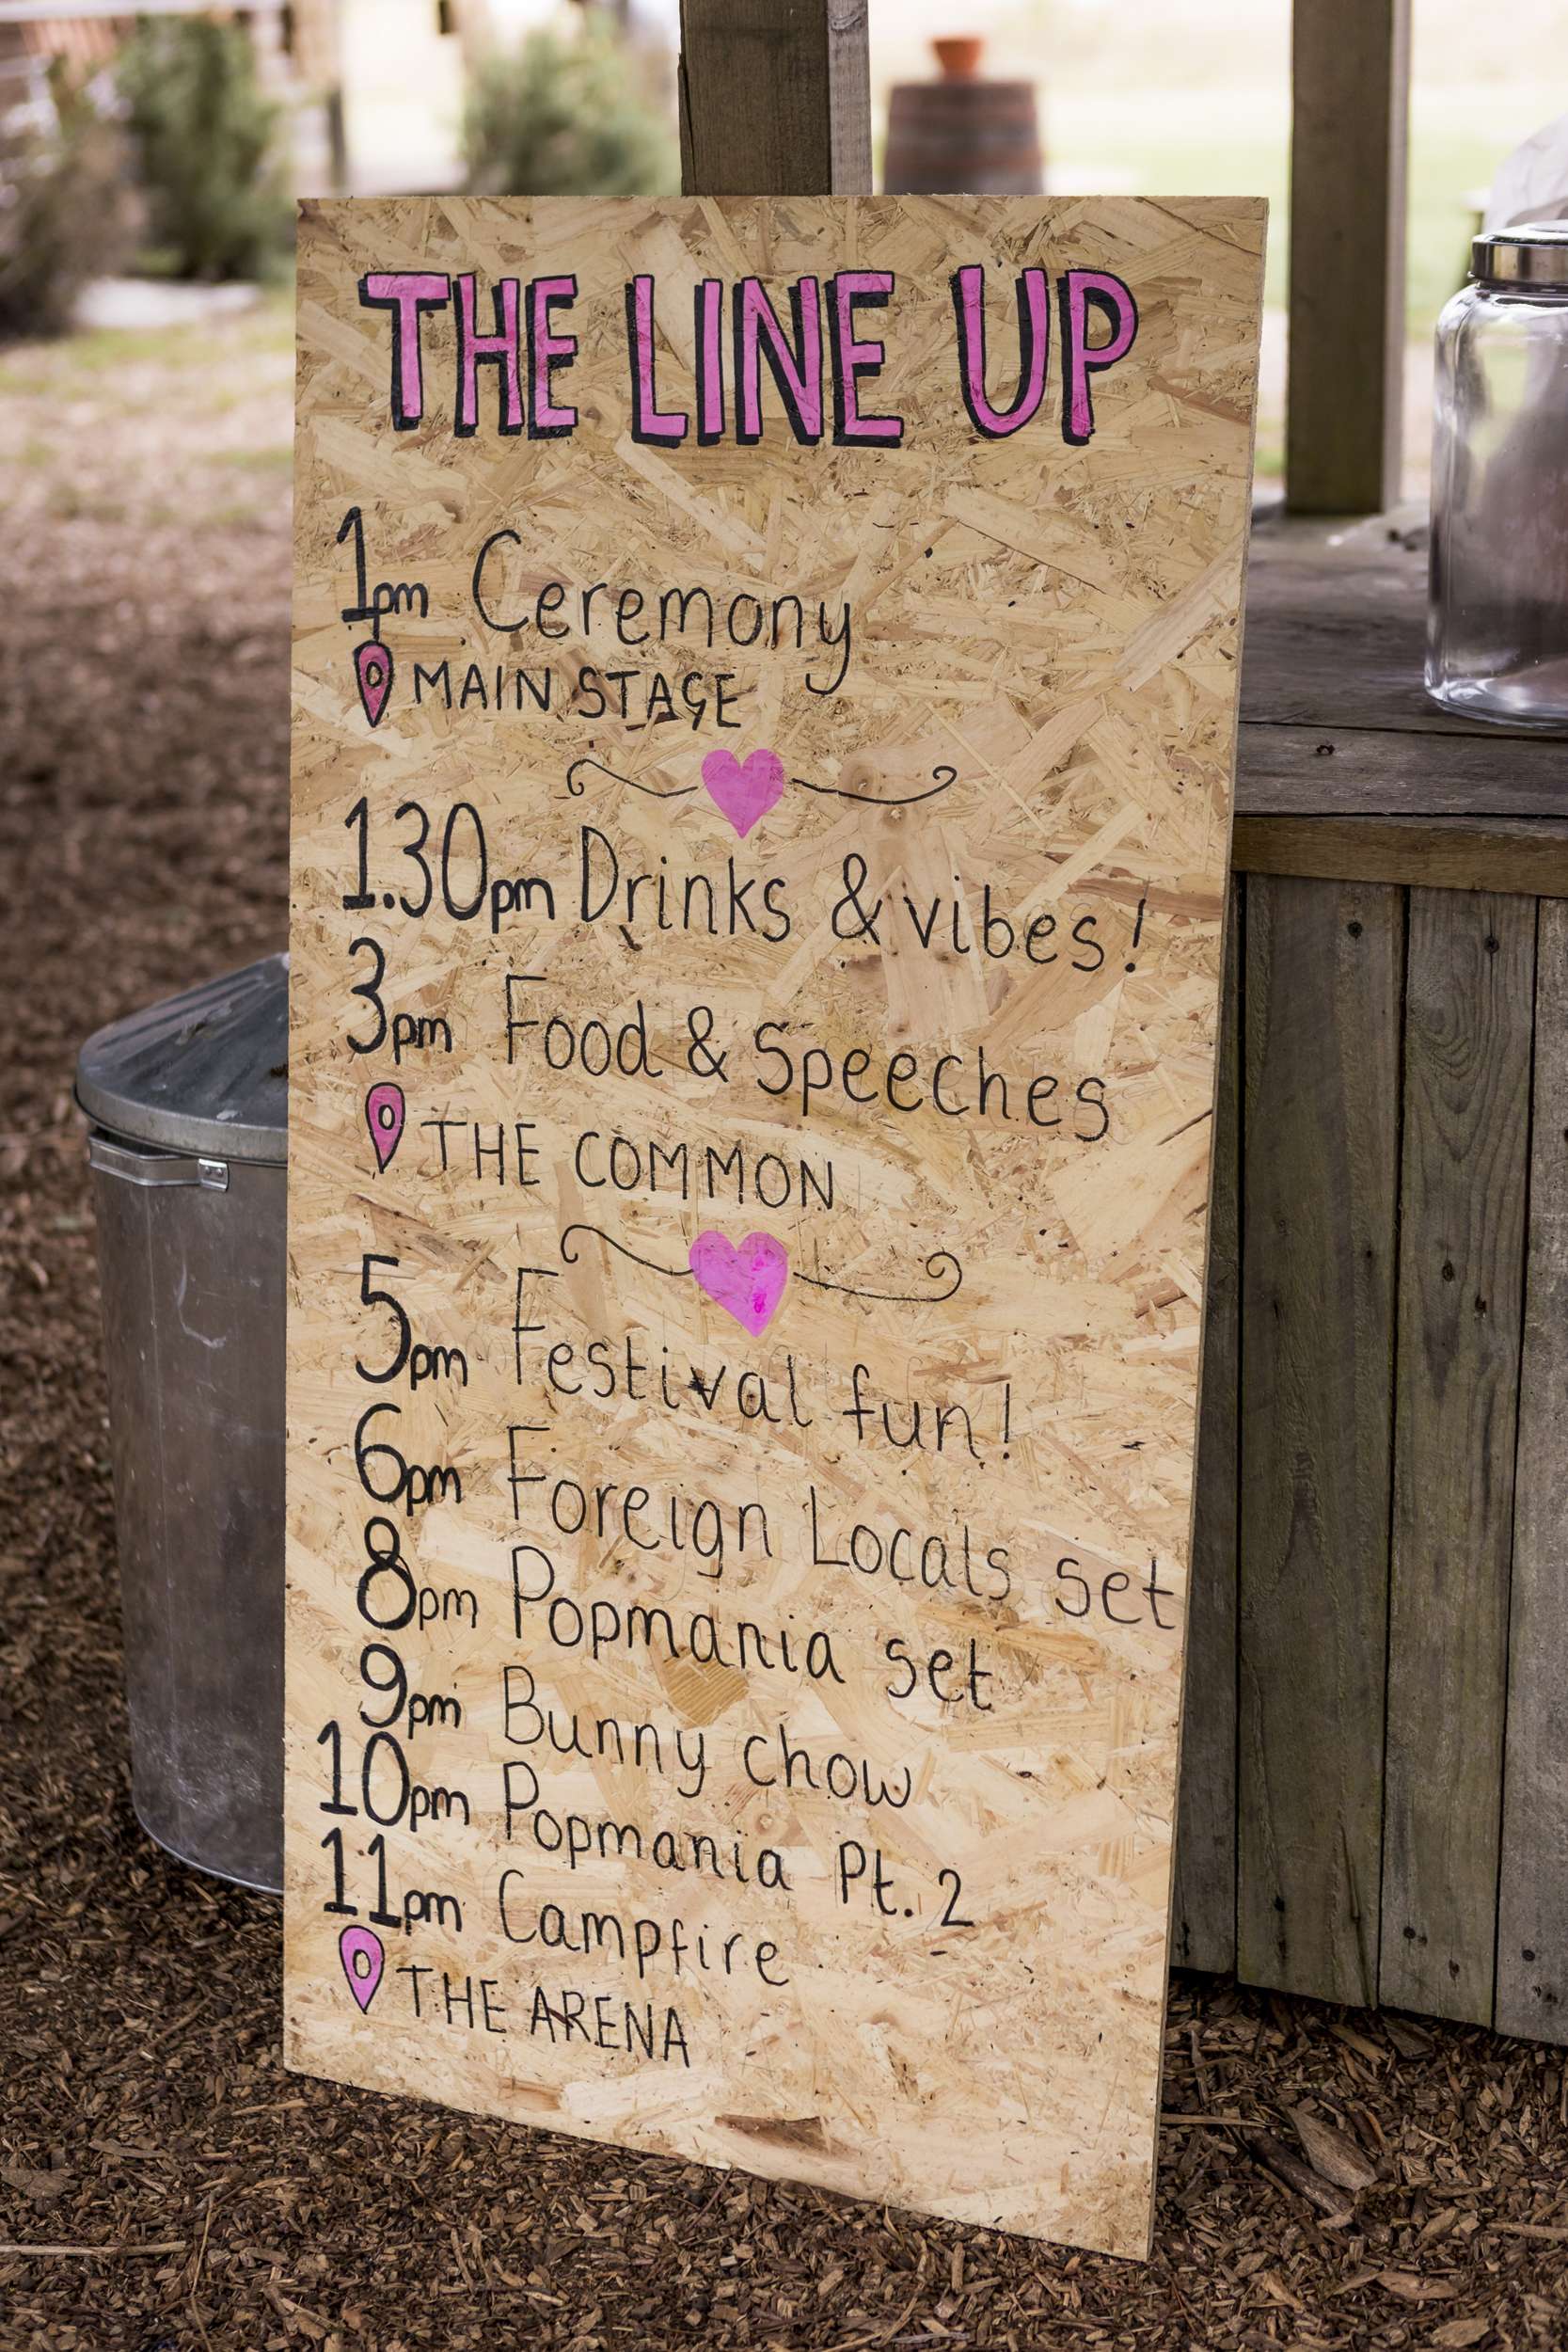 THE LINE UP
1pm Ceremony
MAIN STAGE
1.30pm Drinks & vibes!
3pm Food & Speeches
THE COMMON
5pm Festival fun!
6pm Foreign Locals set
8pm Popmania set
9pm Bunny chow
10pm Popmania Pt. 2
11pm Campfire
THE ARENA